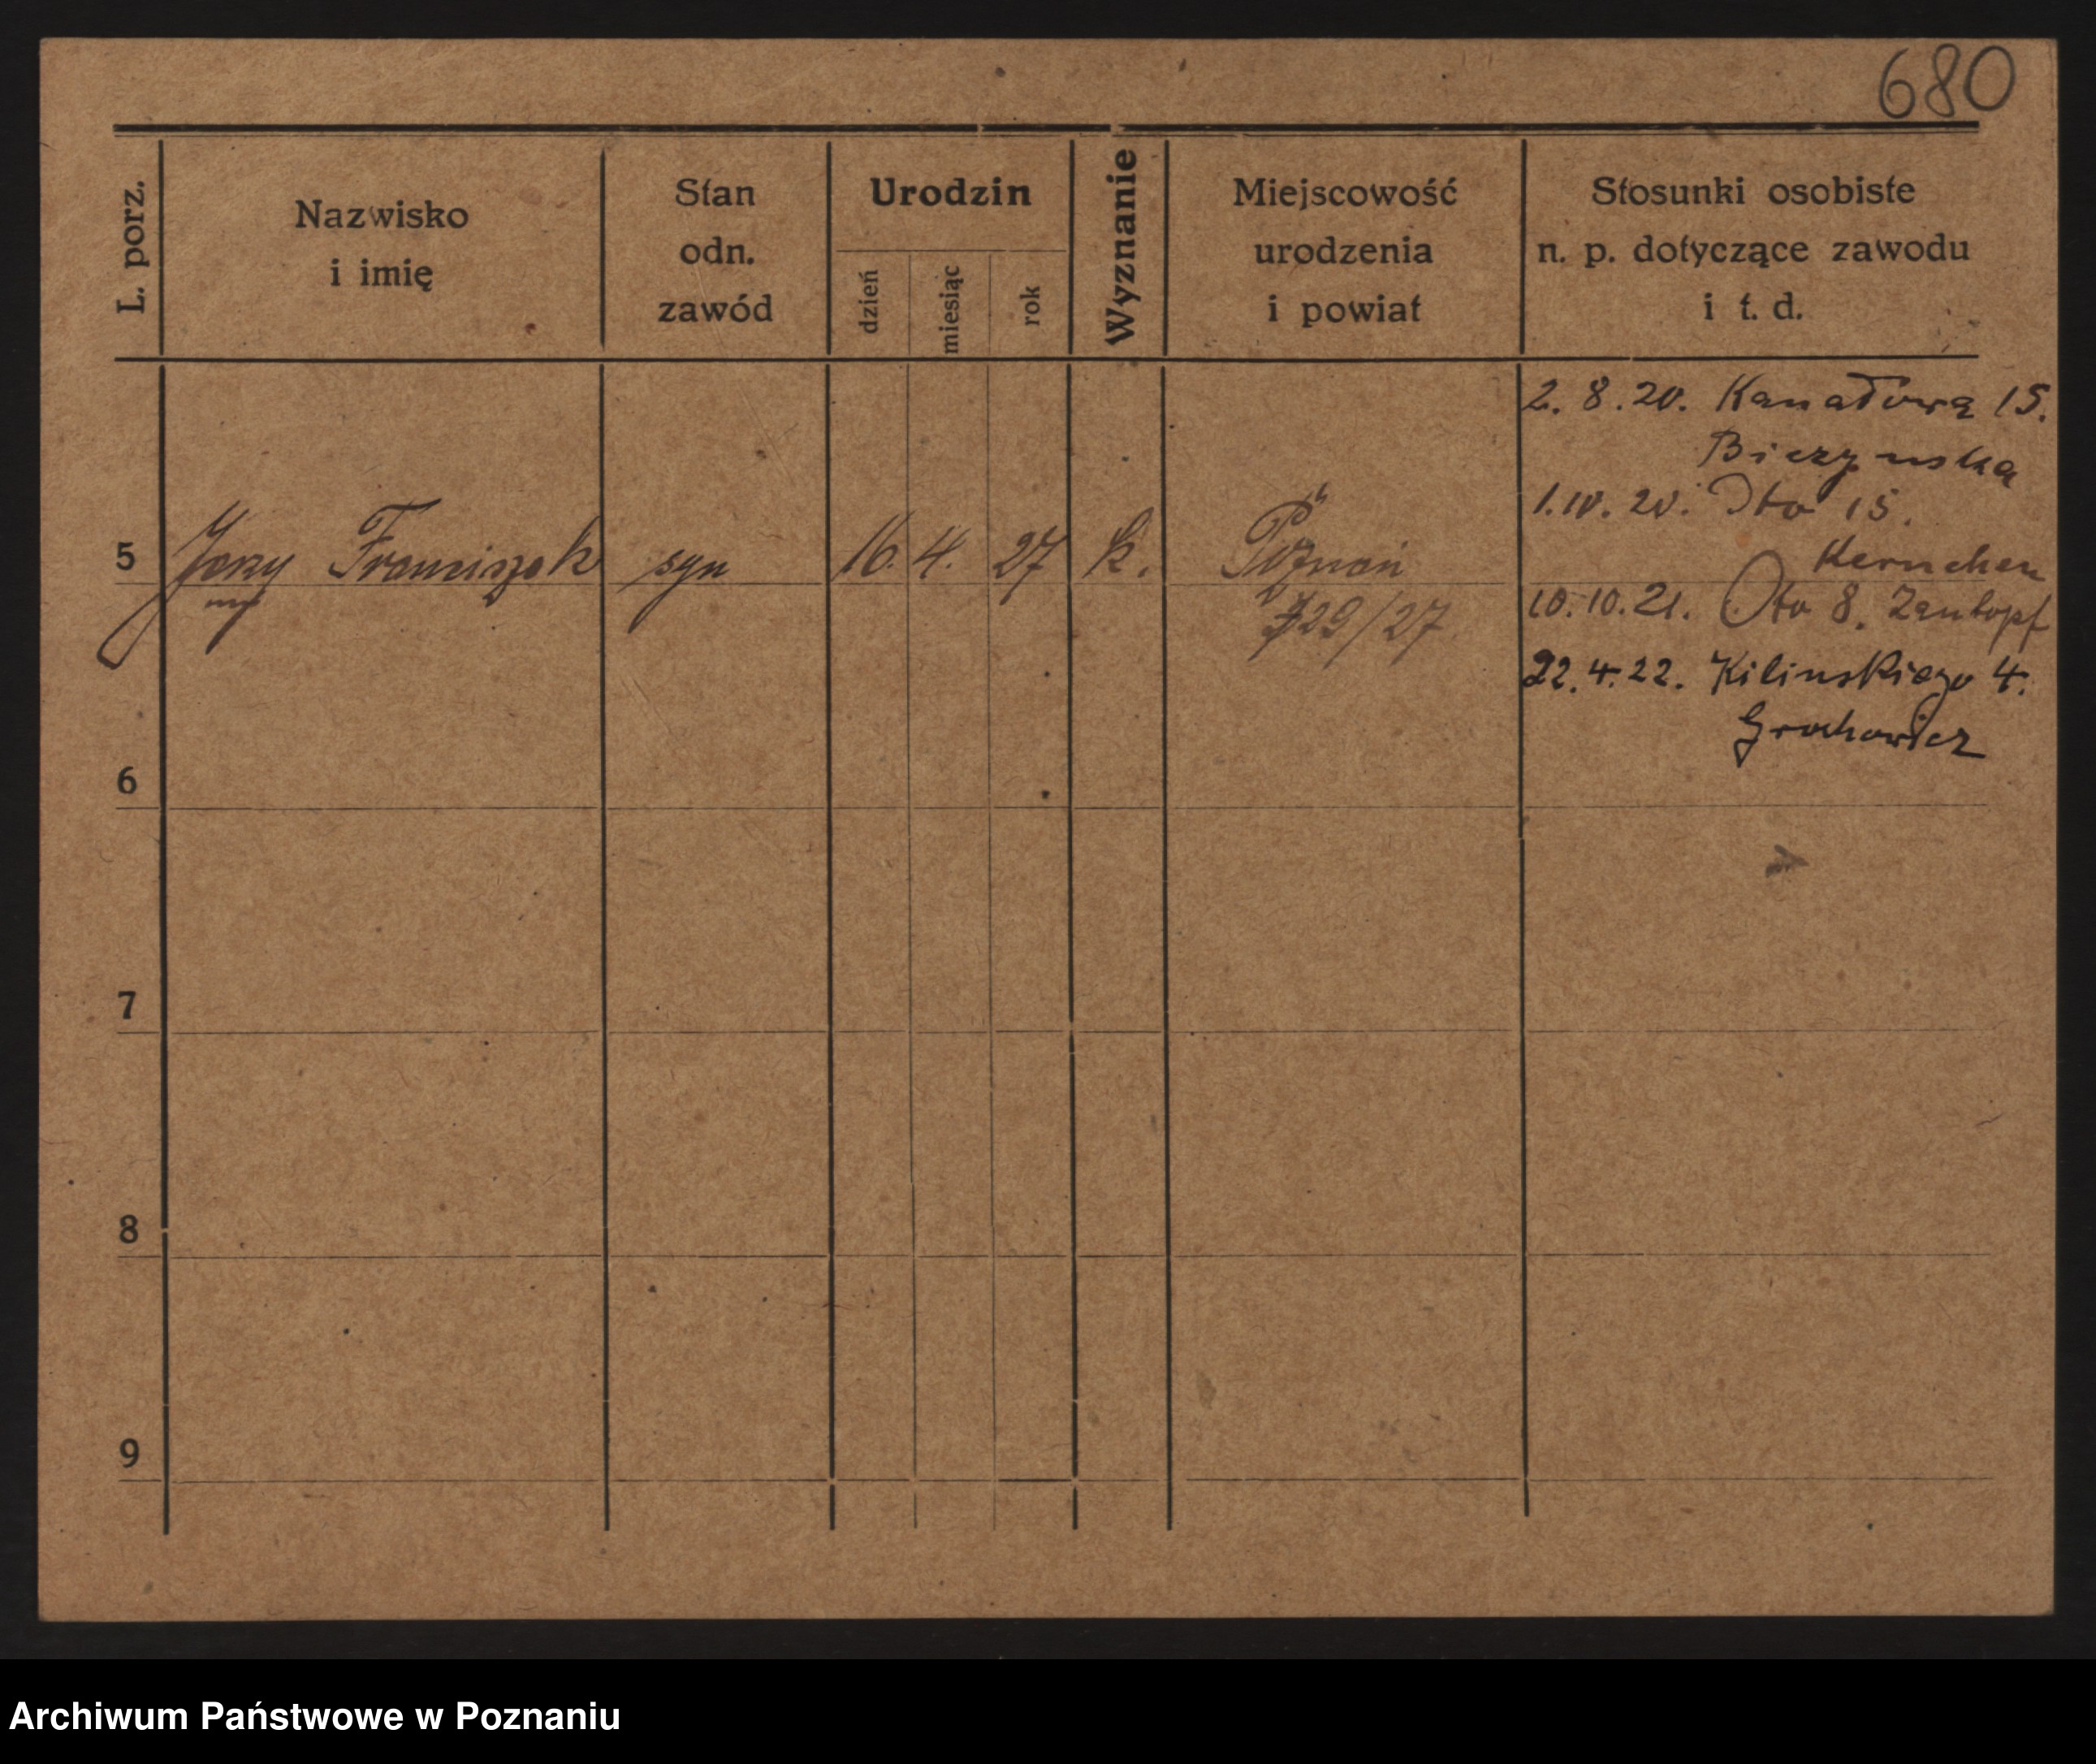 680
L. porz.
Nazwisko
i imię
Stan
odn.
zawód
Urodzin
dzień
miesiąc
rok
Wyznanie
Miejscowość
urodzenia
i powiat
Stosunki osobiste
n. p. dotyczące zawodu
i t. d.
2. 8. 20. Kanałowa 15.
Bieczynska
1. 10. 20. Dto 15.
Kernchen
10. 10. 21. Dto 8. Zentopf
22. 4. 22. Kilinskiego 4.
Grochowicz
5 Jerzy Franciszek syn 16. 4. 27 k. Poznań
729/27
6
7
8
9
Archiwum Państwowe w Poznaniu